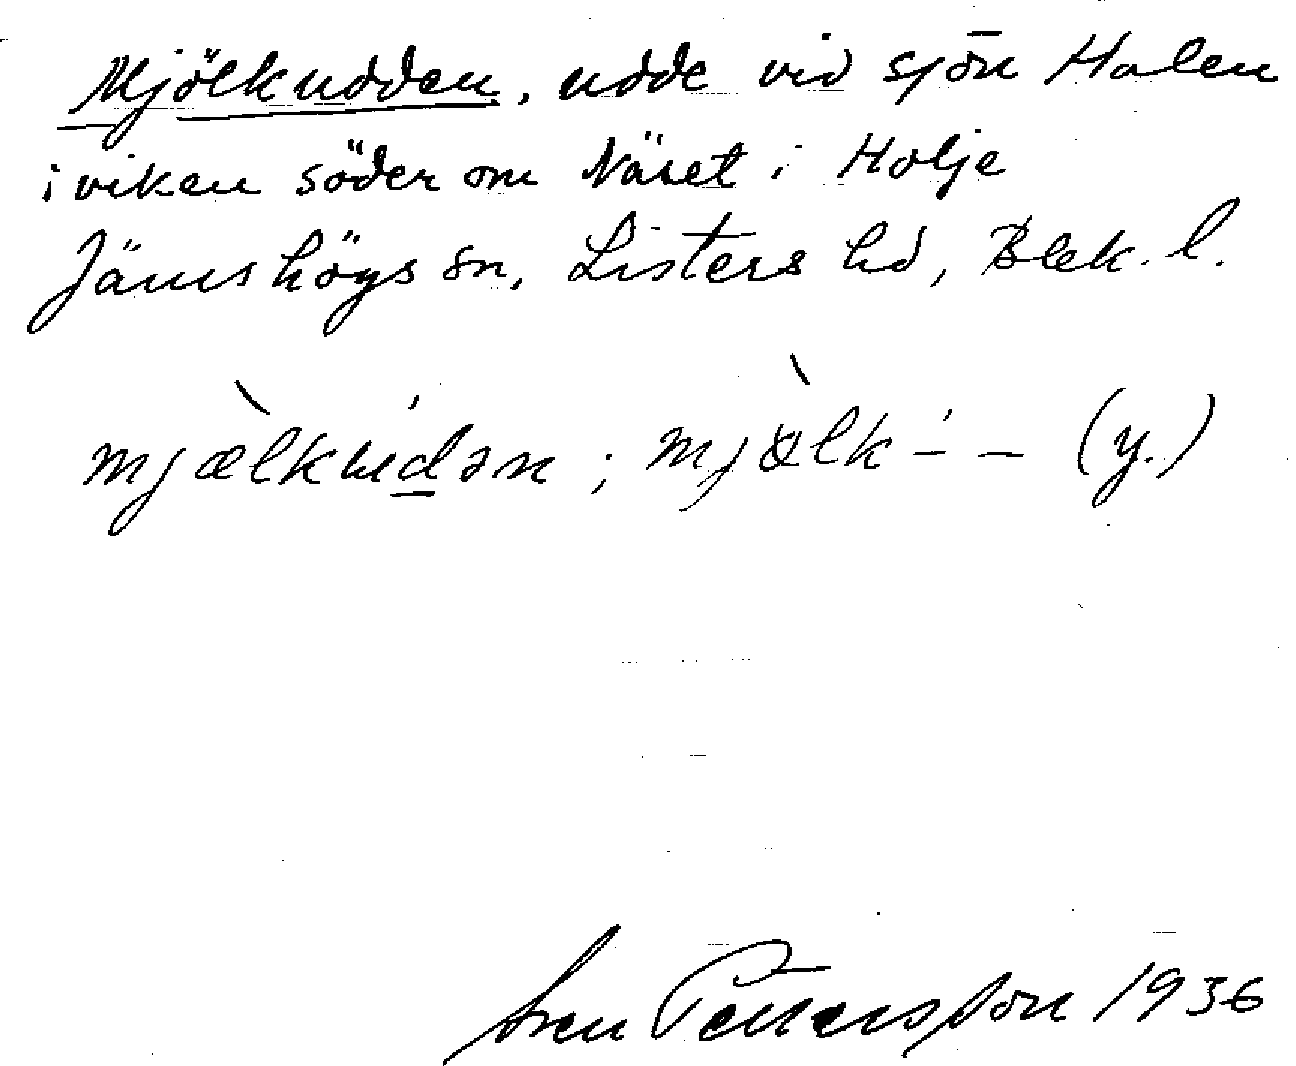 Mjölkudden, udde vid sjön Halen
i viken söder om Näset i Holje
Jämshögs sn, Listers hd, Blek. l.
mjæ̀lkúdən ; mjæ̀lk -́ - (y.)
Sven Pettersson 1936